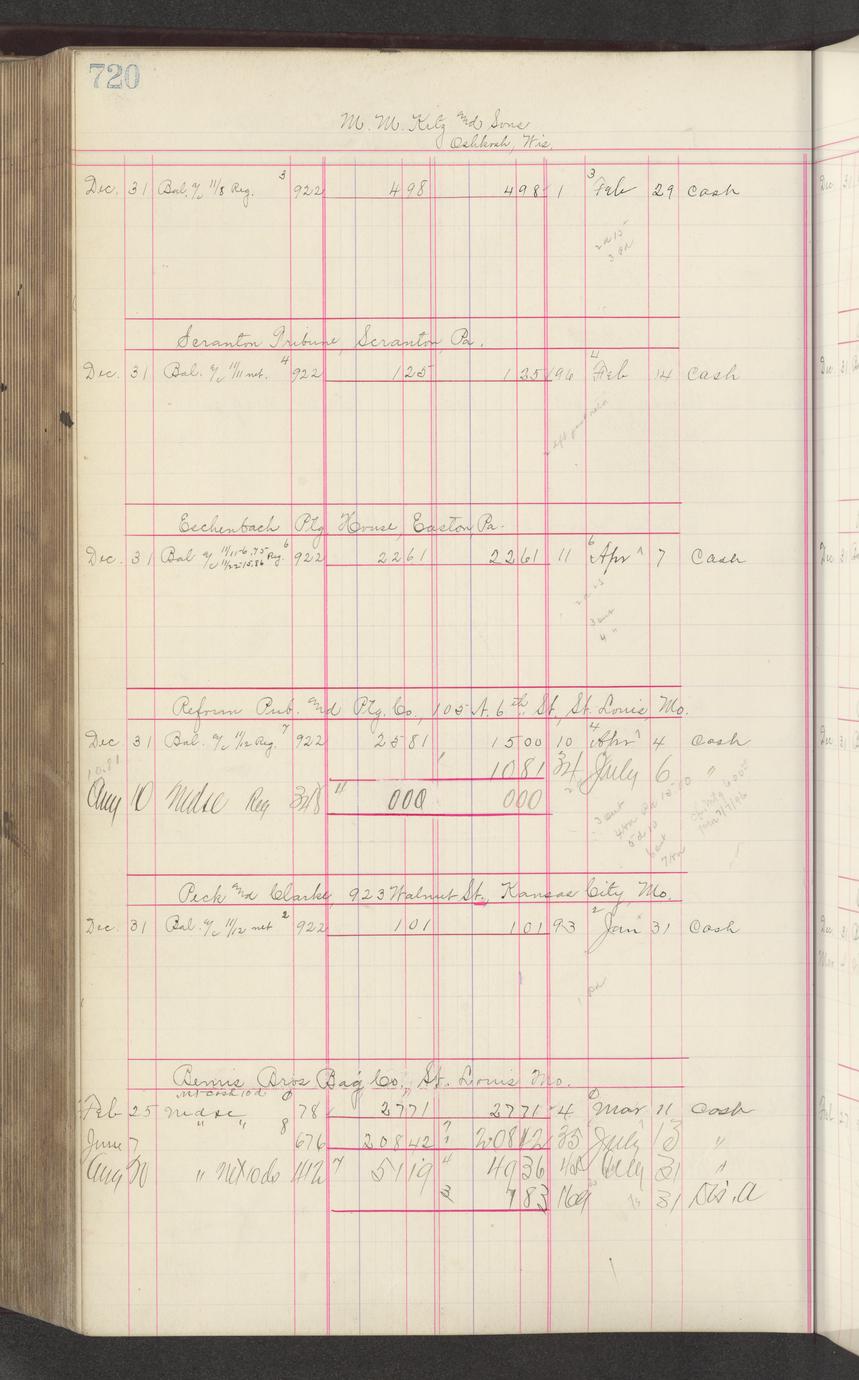 720
M. M. Kitz and Sons
Oshkosh, Wis.
Dec. 31 Bal. a/c 11/8 Reg. 3 922 498 498 1 3 Feb 29 Cash
Scranton Tribune, Scranton, Pa.
Dec. 31 Bal. a/c 11/11 net. 4 922 125 125 96 4 Feb 14 Cash
Eschenbach Ptg House, Easton, Pa.
Dec. 31 Bal a/c 11/11-6.75 Reg. 6 922 2261 2261 11 6 Apr 7 Cash
11/22-15.86
Reform Pub. and Ptg. Co., 105 N. 6th. St., St. Louis, Mo.
Dec 31 Bal. a/c 11/12 Reg. 7 922 2581 1500 10 4 Apr 4 Cash
10.81 1081 34 July 6 "
Aug 10 Mdse Reg 348 " 000 000
Peck and Clarke, 923 Walnut St., Kansas City Mo.
Dec. 31 Bal. a/c 11/12 net 2 922 101 101 93 2 Jan 31 Cash
Bemis Bros Bag Co., St. Louis Mo.
net cash 10 d
Feb 25 Mdse 78 2771 2771 4 Mar 11 Cash
June 7 " " 8 676 20842 20842 35 July 13 "
Aug 20 " net 10 ds 412 5119 4936 Aug 31 "
183 169 31 Dis. A